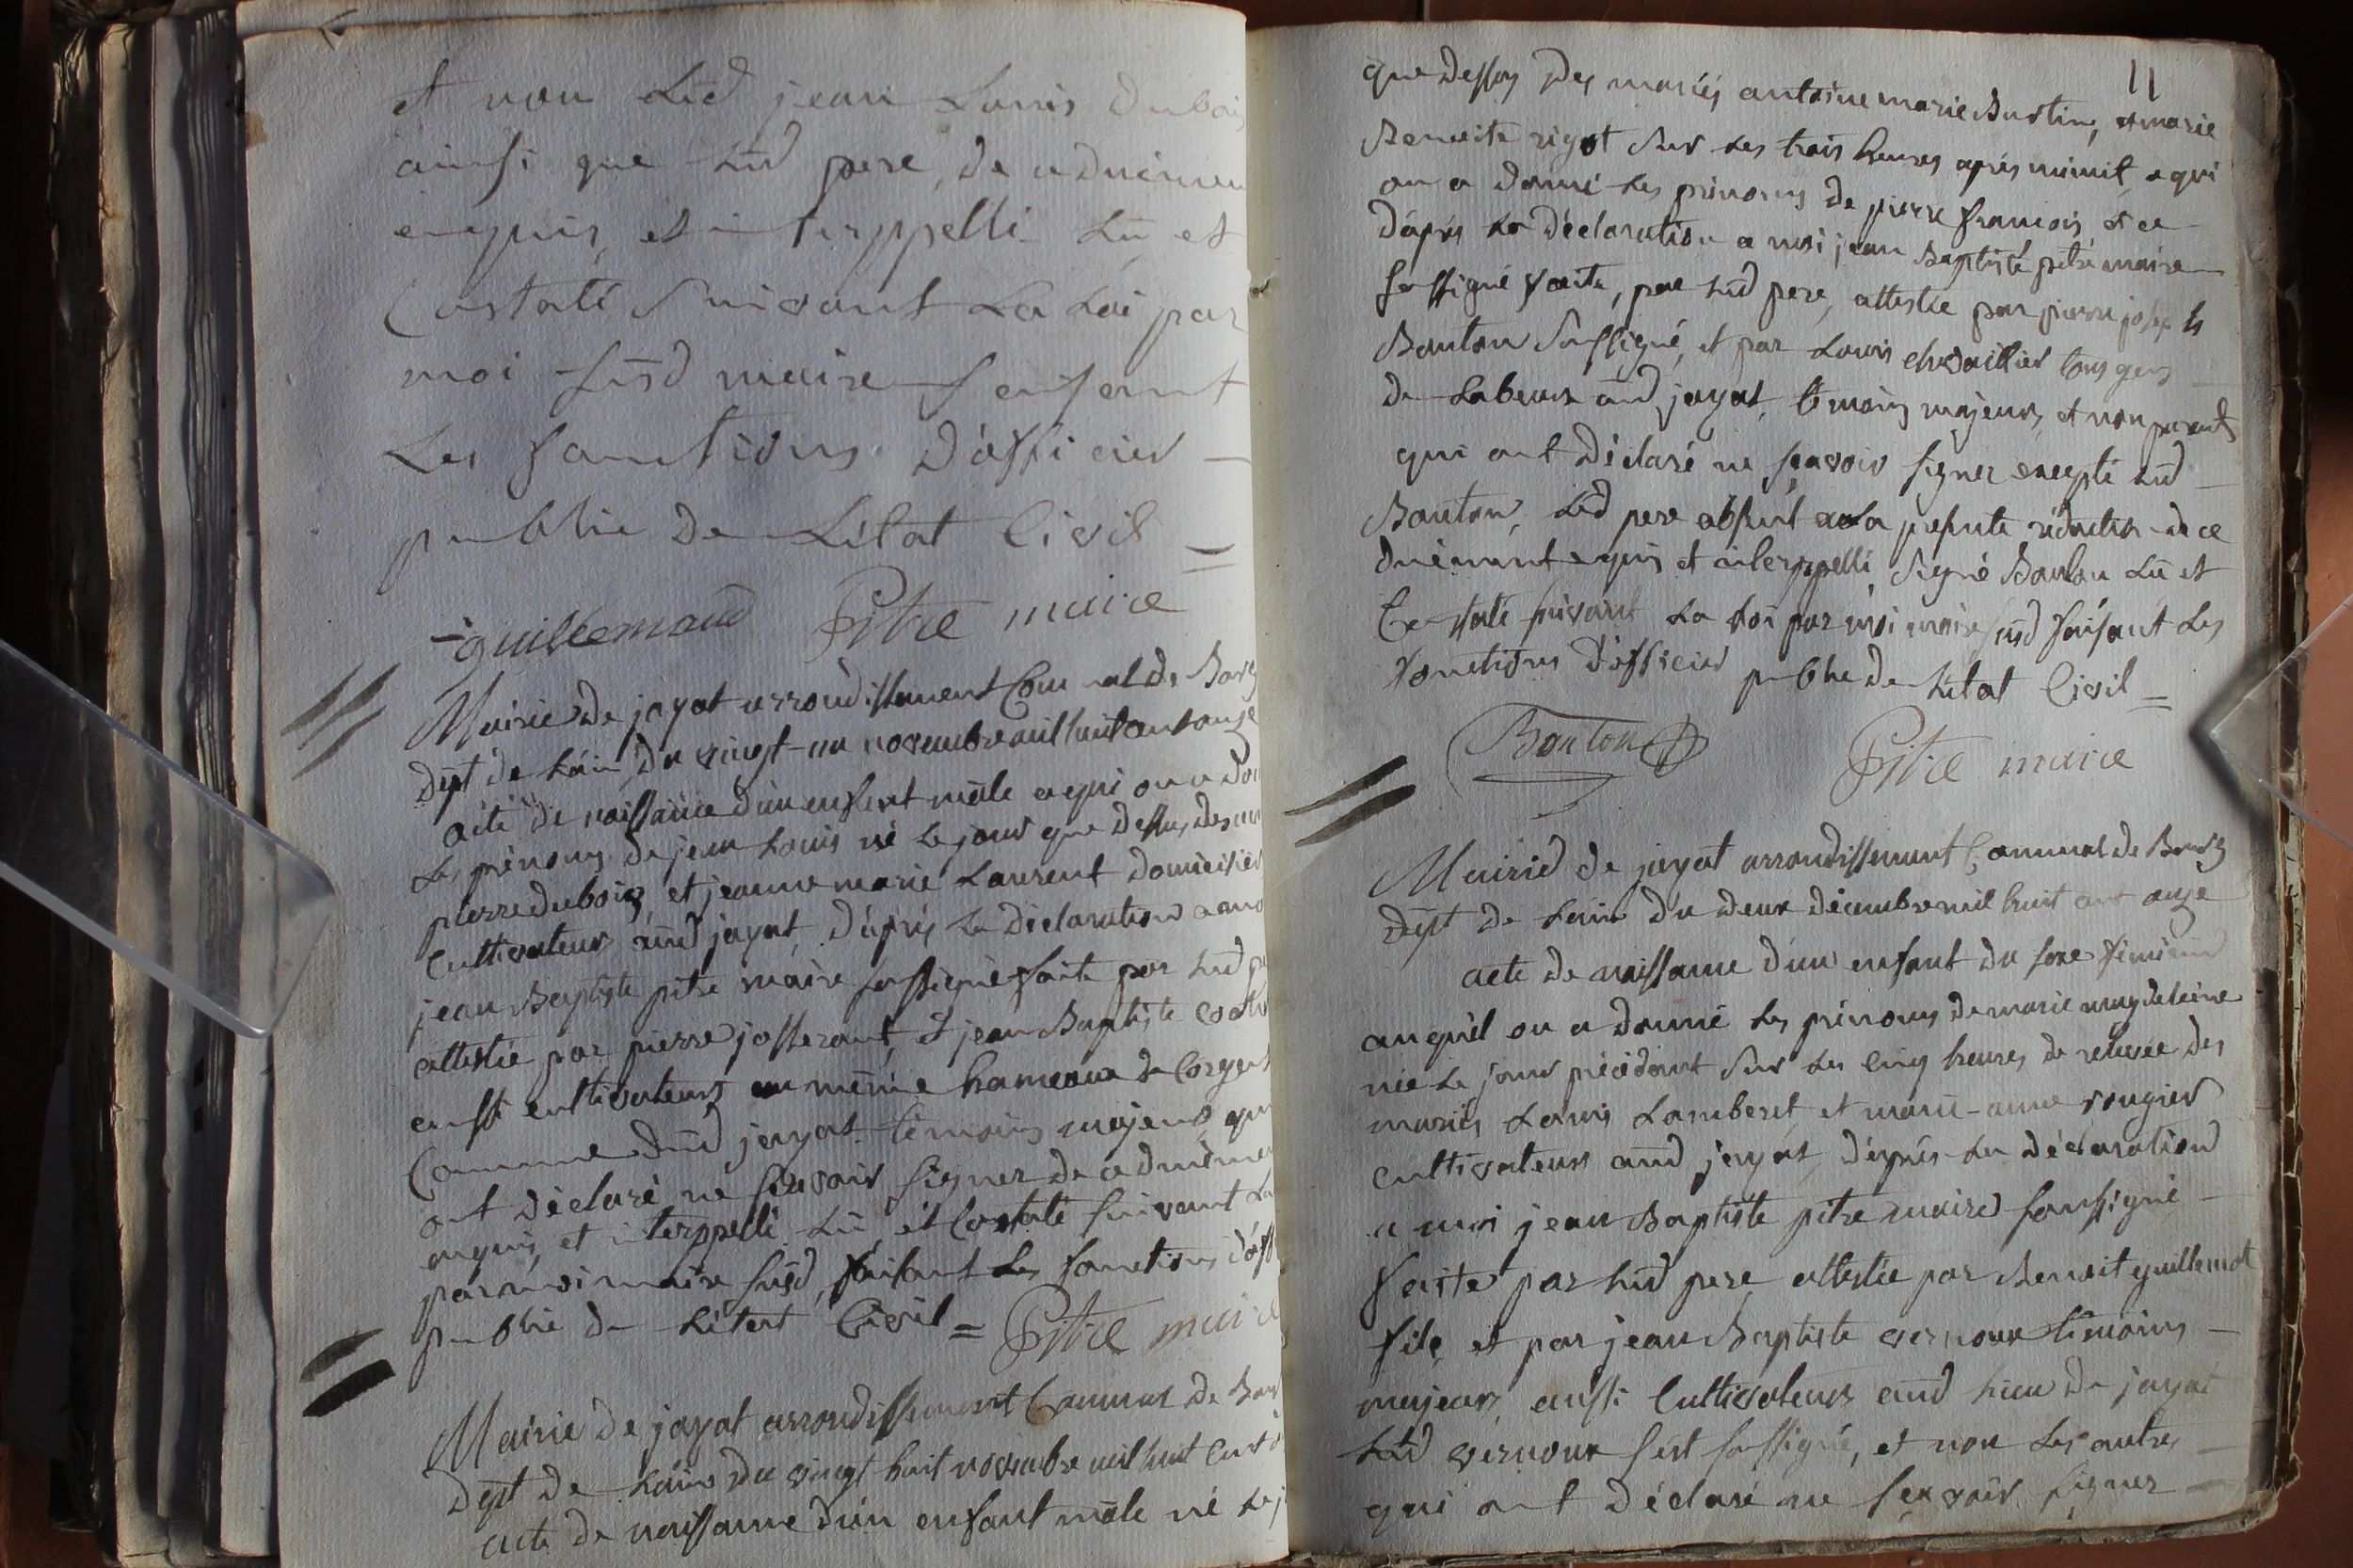 et non Led jean Louis dubois
ainsi que Led pere, de ce duement
enquis, et interppellé Lû et
Constaté suivant La Loi par
moi susd maire faisant
Les fonctions d'officier
public de L'état Civil =
guillemaud Pitre maire
Mairie de jayat arrondissement Communal de Bourg
dept de L'ain du vingt-un novembre mil huit cent onze
acte de naissance d'un enfant mâle a qui on a don
Les prénoms de jean Louis né Le jour que dessus des
pierre dubois et jeanne marie Laurent domiciliés
Cultivateurs aud jayat, d'après La déclaration a moi
jean Baptiste pitre maire soussigné faite par Led pe
attestée par pierre josserant, et jean Baptiste
aussi cultivateurs au même hameau de
Commune dud jayat témoins majeurs qui
ont déclaré ne sçavoir signer de ce duement
enquis, et interppellé Lû, et Constaté suivant La
par moi maire susd, faisant Les fonctions d'off
public de L'état Civil = Pitre maire
Mairie de jayat arrondissement Communal de Bour
dept de L'ain du vingt huit novembre mil huit cent o
acte de naissance d'un enfant mâle né Le j
11
que dessus des mariés antoine marie Bustin, et marie
Benoite rigot sur Les trois heures après minuit, a qui
on a donné Les prénoms de pierre francois et ce
d'après La déclaration a moi jean Baptiste pitre maire
soussigné faite, par Led pere, attestée par pierre joseph
Bouton soussigné, et par Louis chevaillier tous gens
de Labeur aud jayat, témoins majeurs, et non parents
qui ont déclaré ne sçavoir signer excepté Led
Bouton, Led pere absent a La présente rédaction de ce
duement enquis et interppellé, signé Bouton Lû et
Constaté suivant La Loi par moi maire susd faisant Les
fonctions d'officier public de L'état Civil =
Bouton Pitre maire
Mairie de jayat arrondissement Communal de Bourg
dept de L'ain du deux décembre mil huit cent onze
acte de naissance d'un enfant du sexe féminin
auquel on a donné Les prénoms de marie magdeleine
née Le jour précédant sur Les cinq heures de relevée des
mariés Louis Lamberet, et marie-anne rougier
cultivateurs aud jayat, d'après La déclaration
a moi jean Baptiste pitre maire soussigné
faite par Led pere attestée par Benoit guillemot
fils, et par jean Baptiste vernoux témoins
majeurs, aussi Cultivateurs aud Lieu de jayat
Led vernoux s'est soussigné, et non Les autres
qui ont déclaré ne sçavoir signer